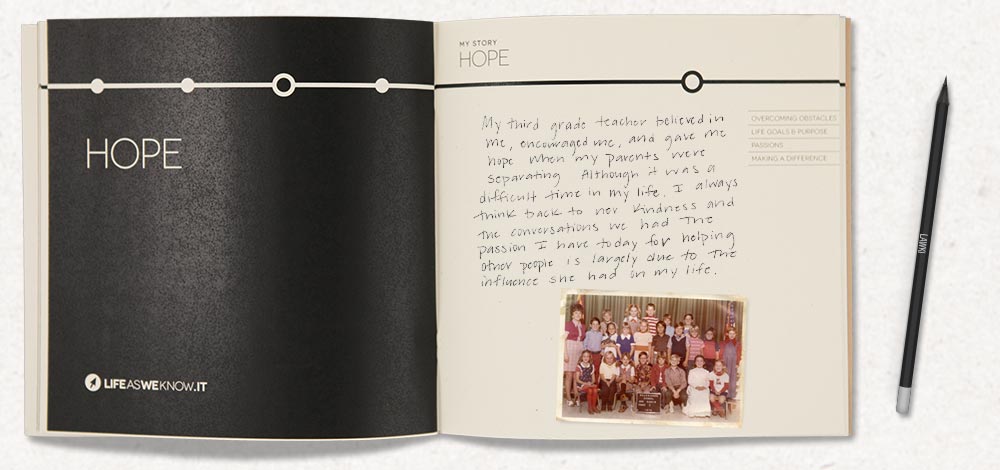 HOPE
LIFEASWEKNOW.IT
MY STORY
HOPE
My third grade teacher believed in
me, encouraged me, and gave me
hope when my parents were
separating Although it was a
difficult time in my life. I always
think back to her kindness and
the conversations we had The
passion I have today for helping
other people is largely due to the
influence she had on my life.
OVERCOMING OBSTACLES
LIFE GOALS & PURPOSE
PASSIONS
MAKING A DIFFERENCE